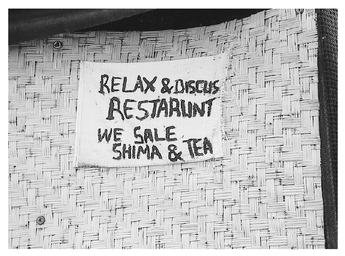 RELAX & DISCUS
RESTARUNT
WE SALE
SHIMA & TEA